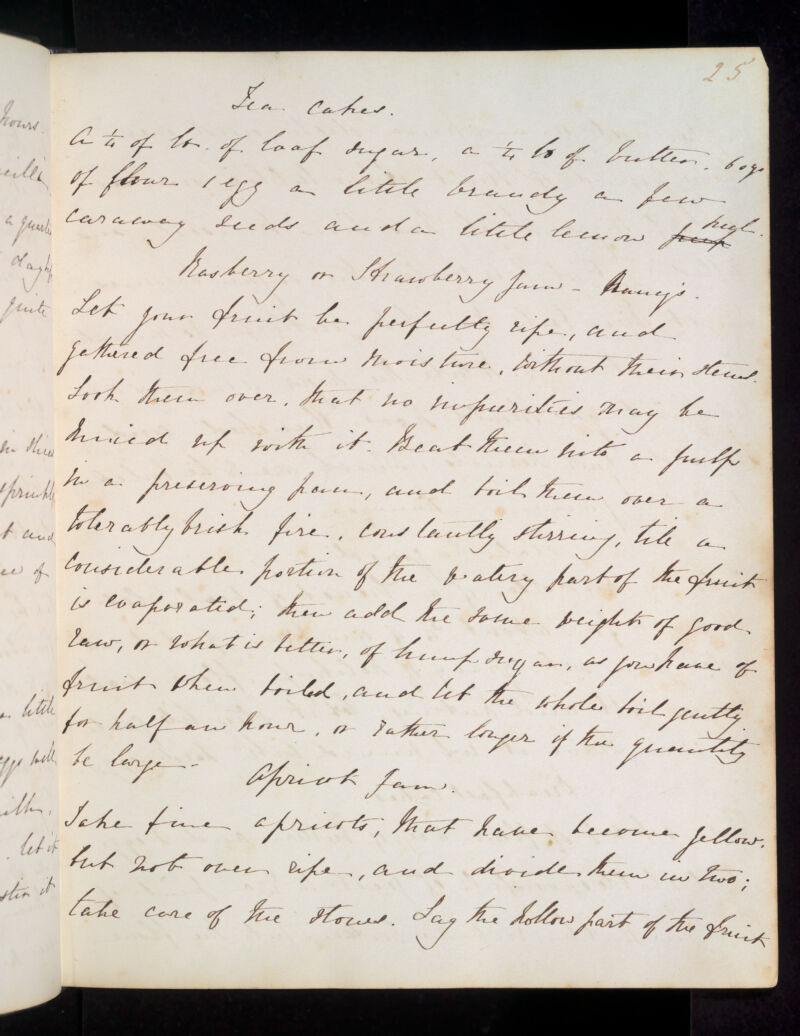 25
Tea cakes.
A ¼ of lb. of loaf sugar, a ¼ lb of butter. 6 ozs
of flour 1 egg a little brandy a few
caraway seeds and a little lemon peel.
Rasberry or Strawberry Jam - Nancy's.
Let your fruit be perfectly ripe, and
gathered free from moisture, without their stems.
Look them over, that no impurities may be
mixed up with it. Beat them into a pulp
in a preserving pan, and boil them over a
tolerably brisk fire, constantly stirring, till a
considerable portion of the watery part of the fruit
is evaporated; then add the same weight of good
raw, or what is better, of lump sugar, as you have of
fruit when boiled, and let the whole boil gently
for half an hour, or rather longer if the quantity
be large -
Apricot Jam.
Take fine apricots, that have become yellow,
but not over ripe, and divide them in two;
take care of the stones. Lay the hollow part of the fruit
hours.
a quarter
quite
in slices
sprinkle
t and
ee of
a little
eggs well
. let it
stir it